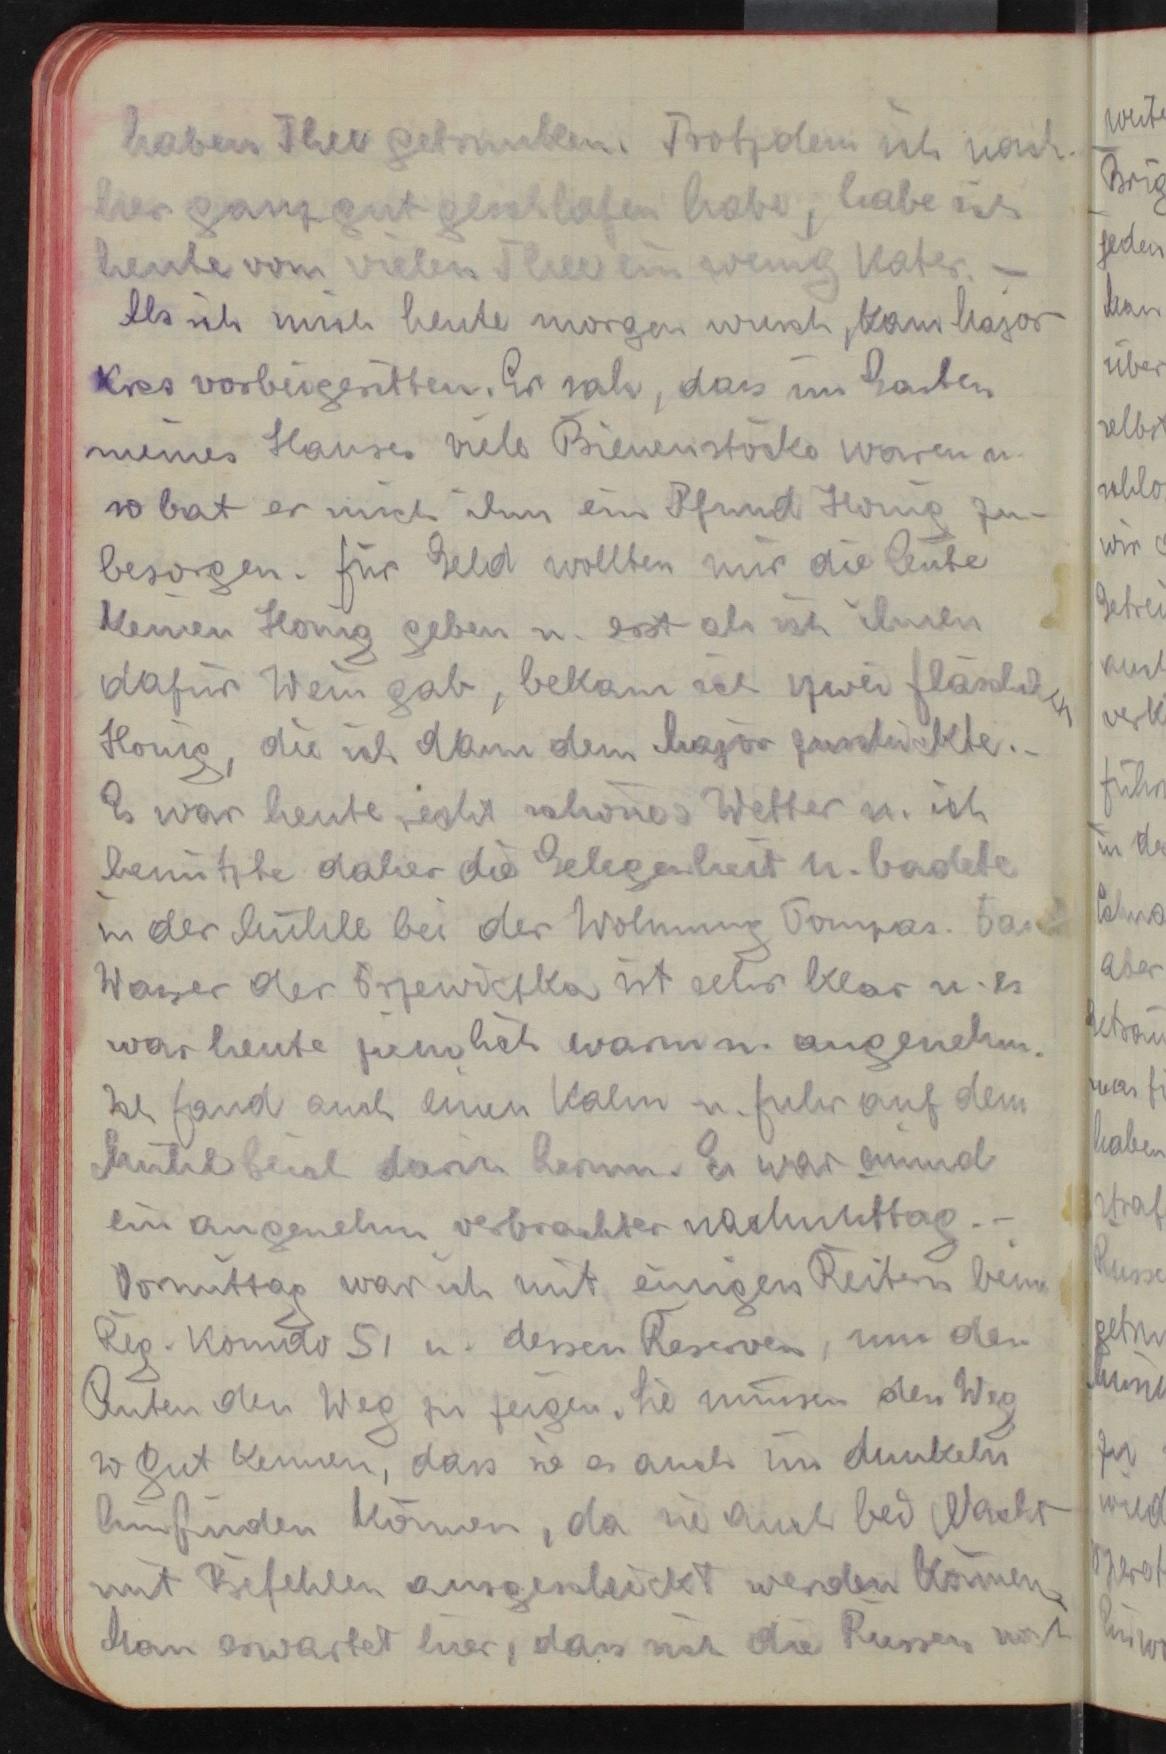 haben Thee getrunken. Trotzdem ich nach-
her ganz gut geschlafen habe, habe ich
heute vom vielen Thee ein wenig Kater. –
Als ich mich heute morgen wusch, kam Major
Kres vorbeigeritten. Er sah, dass im Garten
meines Hauses viele Bienenstöcke waren u.
so bat er mich ihm ein Pfund Honig zu-
besorgen. Für Geld wollten mir die Leute
keinen Honig geben u. erst als ich ihnen
dafür Wein gab, bekam ich zwei Fläschchen
Honig, die ich dann dem Major zuschickte. –
Es war heute recht schönes Wetter u. ich
benützte daher die Gelegenheit u. badete
in der Mühle bei der Wohnung Tompas. Das
Wasser der Drzewiczka ist sehr klar u. es
war heute ziemlich warm u. angenehm.
Ich fand auch einen Kahn u. fuhr auf dem
Mühlteich darin herum. Es war
ein angenehm verbrachter Nachmittag. –
Vormittag war ich mit einigen Reitern beim
Reg. Komdo 51 u. dessen Reserven, um den
Leuten den Weg zu zeigen. Sie müssen den Weg
so gut kennen, dass sie es auch im dunkeln
hinfinden können, da sie auch bei Nacht
mit Befehlen ausgeschickt werden können.
Man erwartet hier, dass sich die Russen noch